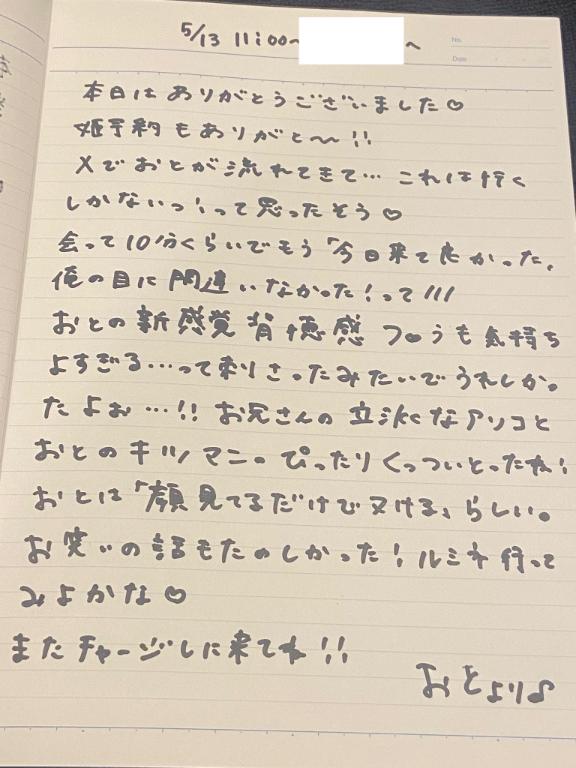 5/13 11:00~ へ
No.
Date
本日はありがとうございました♡
姫予約もありがと〜!!
Xでおとが流れてきて… これは行く
しかないっ!って思ったそう♡
会って10分くらいでもう「今日来て良かった、
俺の目に間違いなかった!って///
おとの新感覚背徳感プレイも気持ち
よすぎる…って刺さったみたいでうれしかっ
たよぉ…!! お兄さんの立派なアソコと
おとのキツマンのぴったりくっついとったね!
おとは「顔見てるだけで ヌける」らしい。
お笑いの話もたのしかった! ルミネ行って
みよかな♡
またチャージしに来てね!!
おとより♪